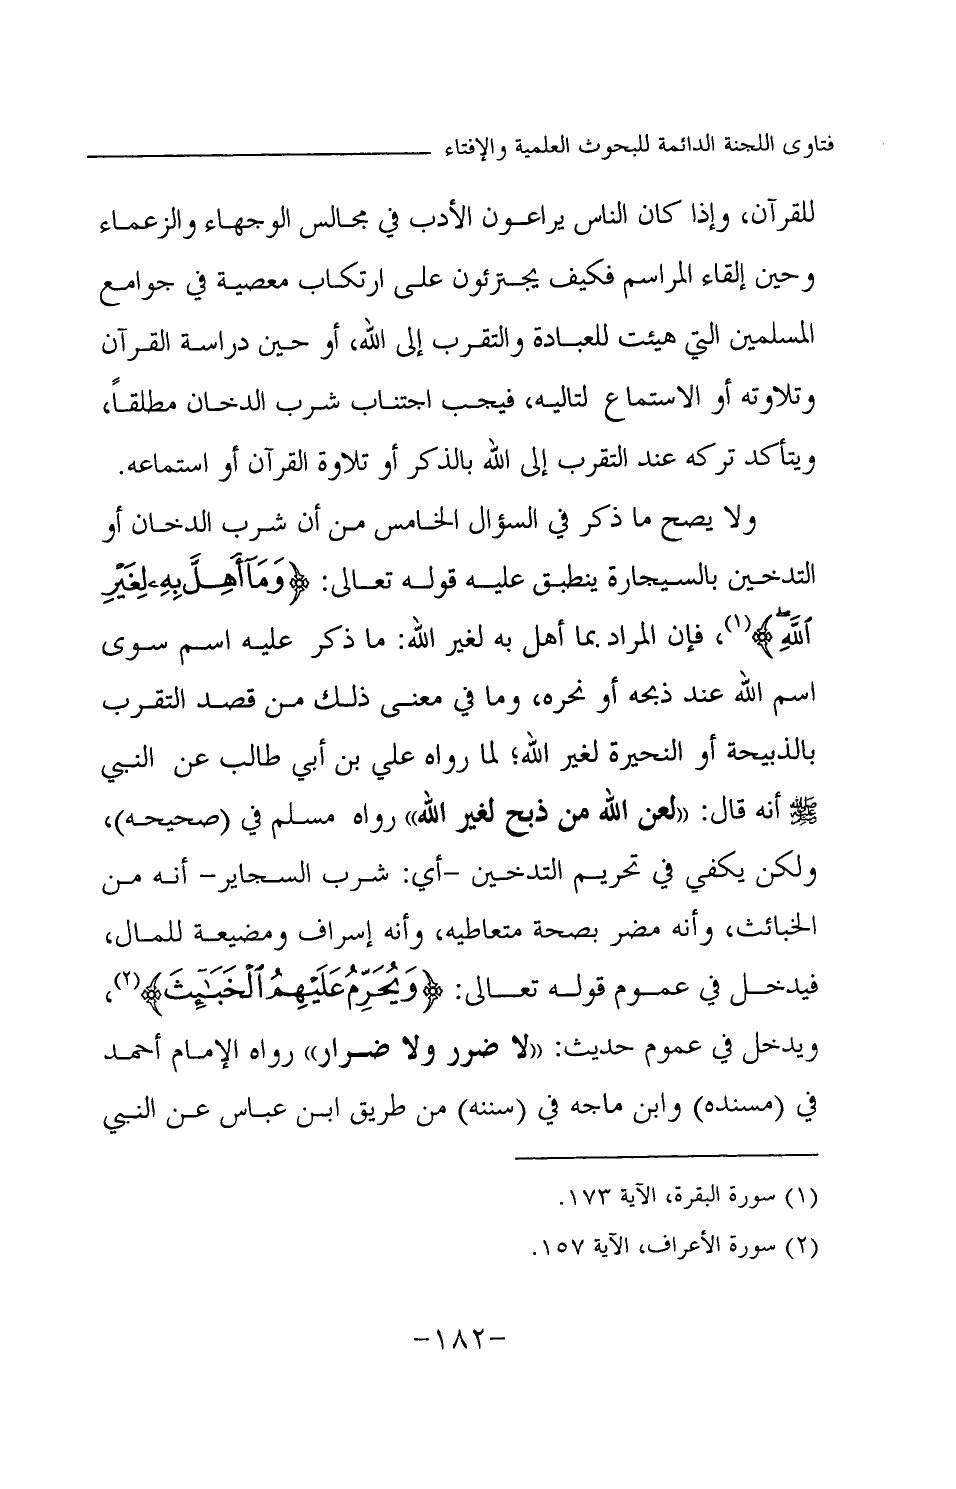 فتاوى اللجنة الدائمة للبحوث العلمية والإفتاء
للقرآن، وإذا كان الناس يراعون الأدب في مجالس الوجهاء والزعماء
وحين إلقاء المراسم فكيف يجترئون على ارتكاب معصية في جوامع
المسلمين التي هيئت للعبادة والتقرب إلى الله، أو حين دراسة القرآن
وتلاوته أو الاستماع لتاليه، فيجب اجتناب شرب الدخان مطلقاً،
ويتأكد تركه عند التقرب إلى الله بالذكر أو تلاوة القرآن أو استماعه.
ولا يصح ما ذكر في السؤال الخامس من أن شرب الدخان أو
التدخين بالسيجارة ينطبق عليه قوله تعالى: ﴿وَمَآ أُهِلَّ بِهِۦ لِغَيْرِ
ٱللَّهِۖ﴾(١)، فإن المراد بما أهل به لغير الله: ما ذكر عليه اسم سوى
اسم الله عند ذبحه أو نحره، وما في معنى ذلك من قصد التقرب
بالذبيحة أو النحيرة لغير الله؛ لما رواه علي بن أبي طالب عن النبي
ﷺ أنه قال: «لعن الله من ذبح لغير الله» رواه مسلم في (صحيحه)،
ولكن يكفي في تحريم التدخين -أي: شرب السجاير- أنه من
الخبائث، وأنه مضر بصحة متعاطيه، وأنه إسراف ومضيعة للمال،
فيدخل في عموم قوله تعالى: ﴿وَيُحَرِّمُ عَلَيْهِمُ ٱلْخَبَـٰٓئِثَ﴾(٢)،
ويدخل في عموم حديث: «لا ضرر ولا ضرار» رواه الإمام أحمد
في (مسنده) وابن ماجه في (سننه) من طريق ابن عباس عن النبي
(١) سورة البقرة، الآية ١٧٣.
(٢) سورة الأعراف، الآية ١٥٧.
-١٨٢-